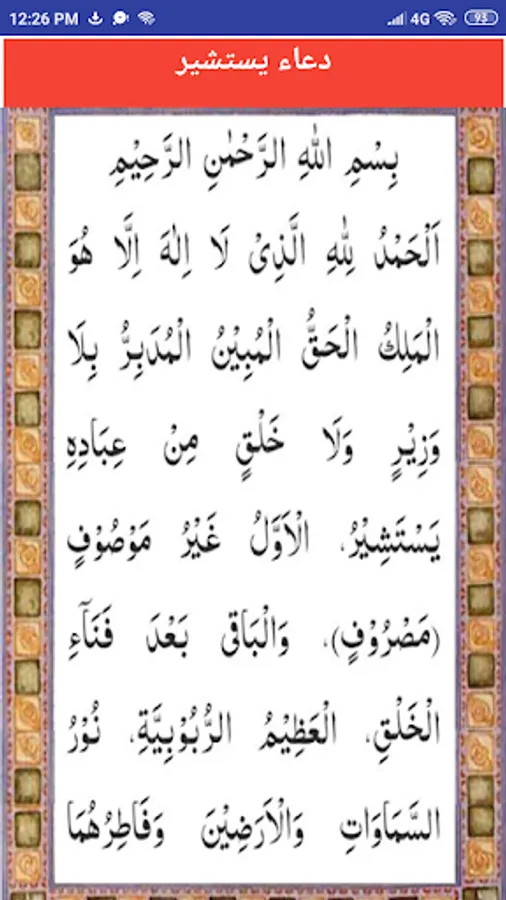 12:26 PM 4G 93
دعاء يستشير
بِسْمِ اللهِ الرَّحْمٰنِ الرَّحِيْمِ
اَلْحَمْدُ لِلّٰهِ الَّذِىْ لَا اِلٰهَ اِلَّا هُوَ
الْمَلِكُ الْحَقُّ الْمُبِيْنُ الْمُدَبِرُّ بِلَا
وَزِيْرٍ وَلَا خَلْقٍ مِنْ عِبَادِهِ
يَسْتَشِيْرُ، الْاَوَّلُ غَيْرُ مَوْصُوْفٍ
(مَصْرُوْفٍ)، وَالْبَاقى بَعْدَ فَنَآءِ
الْخَلْقِ، الْعَظِيْمُ الرُّبُوْبِيَّةِ، نُوْرُ
السَّمَاوَاتِ وَالْاَرَضِيْنَ وَفَاطِرُهُمَا